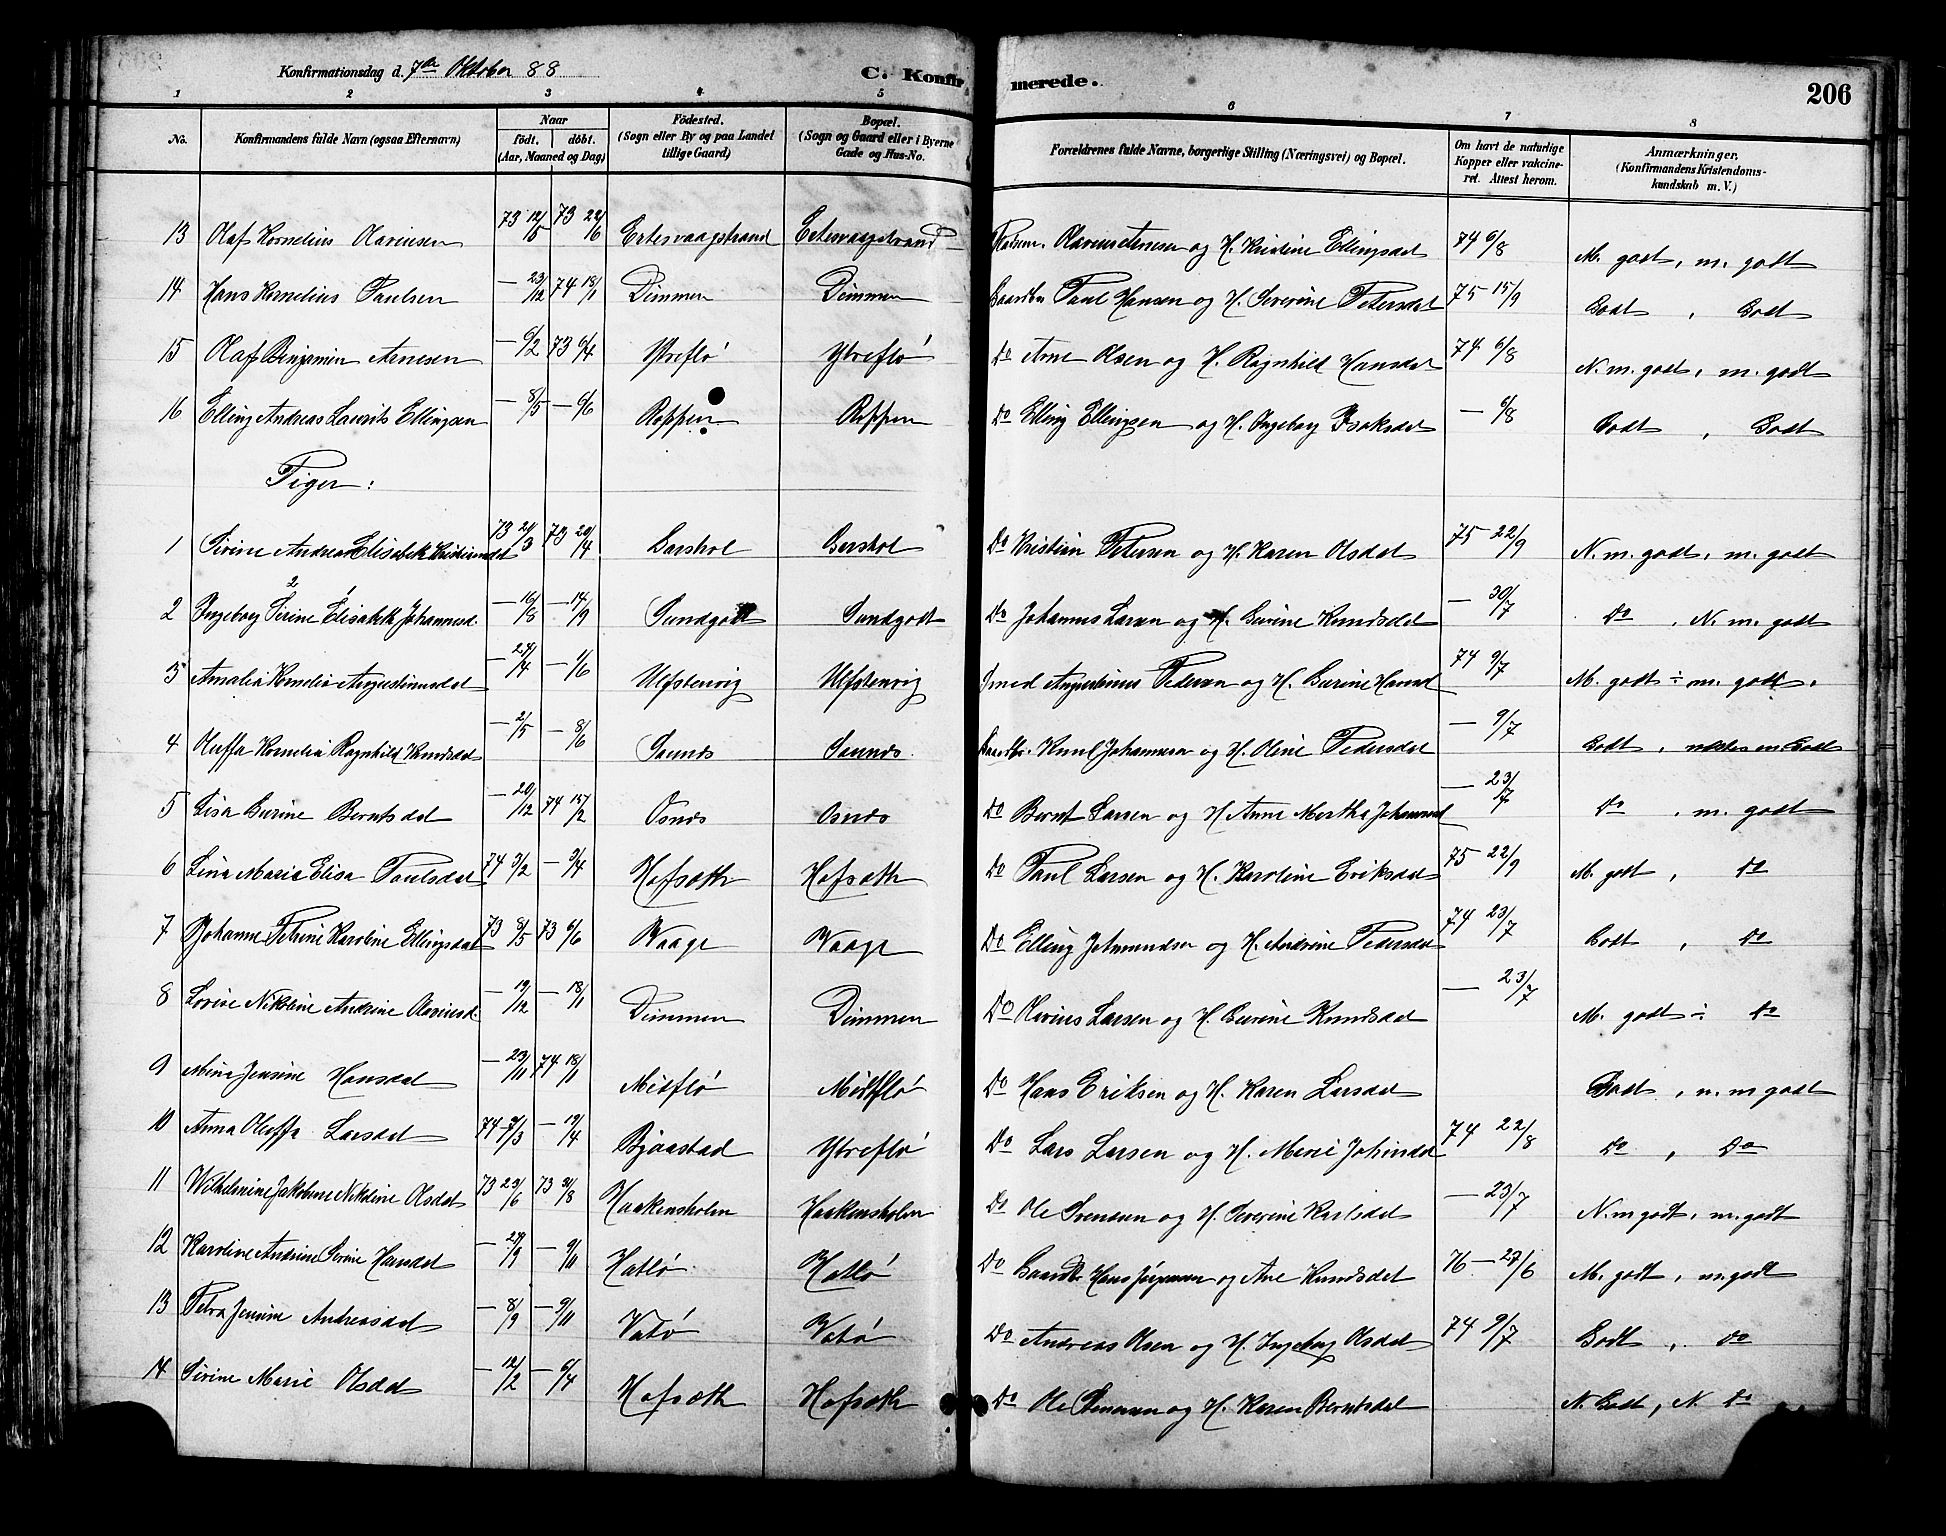 Konfirmationsdag d. 7de Oktober 88
C. Konfirmerede.
206
1 2 3 4 5 6 7 8
No. Konfirmandens fulde Navn (ogsaa Efternavn) Naar födt. döbt. (Aar, Maaned og Dag) Födested. (Sogn eller By og paa Landet tillige Gaard) Bopæl. (Sogn og Gaard eller i Byerne Gade og Hus-No. Forældrenes fulde Navne, borgerlige Stilling (Næringsvei) og Bopæl. Om havt de naturlige Kopper eller vakcineret. Attest herom. Anmærkninger. (Konfirmandens Kristendomskundskab m. V.)
13 Olaf Kornelius Olavinsen 73 12/5 73 22/6 Ertesvaagstrand Ertesvaagstrand og H. Kristine Ellingsdat 74 6/8 M. godt, m. godt
14 Hans Kornelius Paulsen — 23/12 74 18/1 Dimmen Dimmen Gaardbr Paul Hansen og H. Severine Petersdat 75 15/9 Godt, Godt
15 Olaf Benjamin Arnesen — 6/2 73 6/4 Ytreflø Ytreflø Do Arne Olsen og H. Ragnhild Hansdat 74 6/8 N. m. godt, m. godt
16 Elling Andreas Laurits Ellingsen — 8/5 — 6/6 Roppen Roppen Do Elling Ellingsen og H. Ingeborg Isaksdat — 6/8 Godt, Godt
Piger:
1 Sirine Andrea Elisabeth Kristiansdat 73 21/3 73 20/4 Garshol Garshol Do Kristian Petersen og H. Karen Olsdat 75 22/9 N. m. godt, m. godt
2 Ingeborg Sirine Elisabeth Johannesd. — 16/8 — 14/9 Sundgodt Sundgodt Do Johannes Larsen og H. Gurine Knudsdat — 30/7 Do, N. m. godt
3 Amalia Kornelia Augustinusdat — 27/4 — 1/6 Ulfstenvig Ulfstenvig Augustinus Pedersen og H. Gurine Hansd 74 9/7 M. godt ÷ m. godt.
4 Oluffa Kornelia Ragnhild Knudsdat — 2/5 — 8/6 Saunds Saunds Gaardbr. Knud Johannesen og H. Oline Pedersdat — 9/7 Godt, næsten Godt
5 Lisa Gurine Berntsdat — 20/12 74 15/2 Osnes Osnes Do Bernt Larsen og H Anne Martha Johannesd — 23/7 Do, m. godt
6 Lina Maria Elisa Paulsdat 74 3/2 — 3/4 Hofsæth Hofsæth Do Paul Larsen og H. Karoline Eriksdat 75 22/9 M. godt, Do
7 Johanne Petrine Karoline Ellingsdat 73 8/5 73 6/6 Waage Waage Do Elling Johannesen og H. Andrine Pedersdat 74 23/7 Godt, Do
8 Lovise Nikoline Andrine Olavinsd. — 19/12 — 18/1 Dimmen Dimmen Do Larsen og H. Gurine Knudsdat — 23/7 M. godt ÷ Do
9 Mina Jensine Hansdat — 23/11 74 18/1 Midflø Midtflø Do Hans Eriksen og H. Karen Larsdat Godt, n. m godt
10 Anna Oluffa Larsdat 74 9/3 — 19/4 Bjaastad Ytreflø Do Lars Larsen og H. Marie 74 22/8 Do, Do
11 Wilhelmine Jakobine Nikoline Olsdat 73 23/6 73 31/8 Haakensholm Haakensholm Do Ole Svensen og H. Severine Karlsdat — 23/7 N. m godt, m. godt
12 Karoline Andrine Sirine Hansdat — 27/9 — 9/11 Hatlø Hatlø Do Gaardbr Hans og Ane Knudsdat 76 — 27/6 M. godt, m. godt
13 Petra Jensine Andreasdat — 8/9 — 9/11 Vatø Vatø Do Andreas Olsen og H. Ingeborg Olsdat 74 9/7 Godt, do
14 Sirine Marie Olsdat — 12/2 — 6/4 Hofsæth Hofsæth Do Ole og H. Karen Berntsdat N. Godt, N. Do